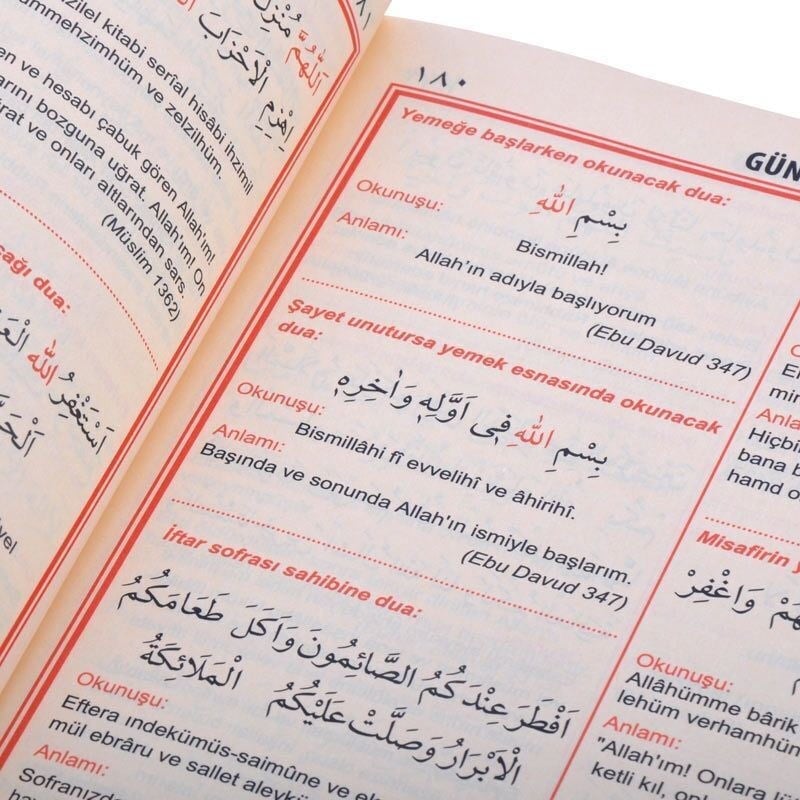 ١٨١
اَللّٰهُمَّ مُنْزِلَ
اِهْزِمِ الْاَحْزَابَ
zilel kitabi serîal hisâbi ihzimil
ummehzimhüm ve zelzilhüm.
en ve hesabı çabuk gören Allah'ım!
arını bozguna uğrat. Allah'ım! On
ğrat ve onları altlarından sars.
(Müslim 1362)
cağı dua:
اَسْتَغْفِرُ اللّٰهَ
١٨٠
GÜN
Yemeğe başlarken okunacak dua:
بِسْمِ اللّٰهِ
Okunuşu:
Bismillah!
Anlamı:
Allah'ın adıyla başlıyorum
(Ebu Davud 347)
Şayet unutursa yemek esnasında okunacak
dua:
بِسْمِ اللّٰهِ فِى اَوَّلِهِ وَاٰخِرِهِ
Okunuşu:
Bismillâhi fî evvelihî ve âhirihî.
Anlamı:
Başında ve sonunda Allah'ın ismiyle başlarım.
(Ebu Davud 347)
İftar sofrası sahibine dua:
اَفْطَرَ عِنْدَكُمُ الصَّائِمُونَ وَاَكَلَ طَعَامَكُمُ
الْاَبْرَارُ وَصَلَّتْ عَلَيْكُمُ الْمَلَائِكَةُ
Okunuşu:
Eftera ındekümüs-saimûne ve e
mül ebrâru ve sallet aleykü
Anlamı:
Sofranızd
Okunu
El
min
Anla
Hiçbi
bana b
hamd o
Misafirin y
وَاغْفِرْ
Okunuşu:
Allâhümme bârik
lehüm verhamhün
Anlamı:
"Allah'ım! Onlara
ketli kıl, onl